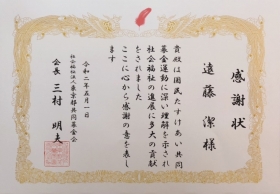 感謝状
遠藤 潔 様
貴殿は国民たすけあい共同
募金運動に深い理解を示され
社会福祉の進展に多大の貢献
をされました
ここに心から感謝の意を表し
ます
令和二年五月一日
社会福祉法人東京都共同募金会
会長 三村 明夫